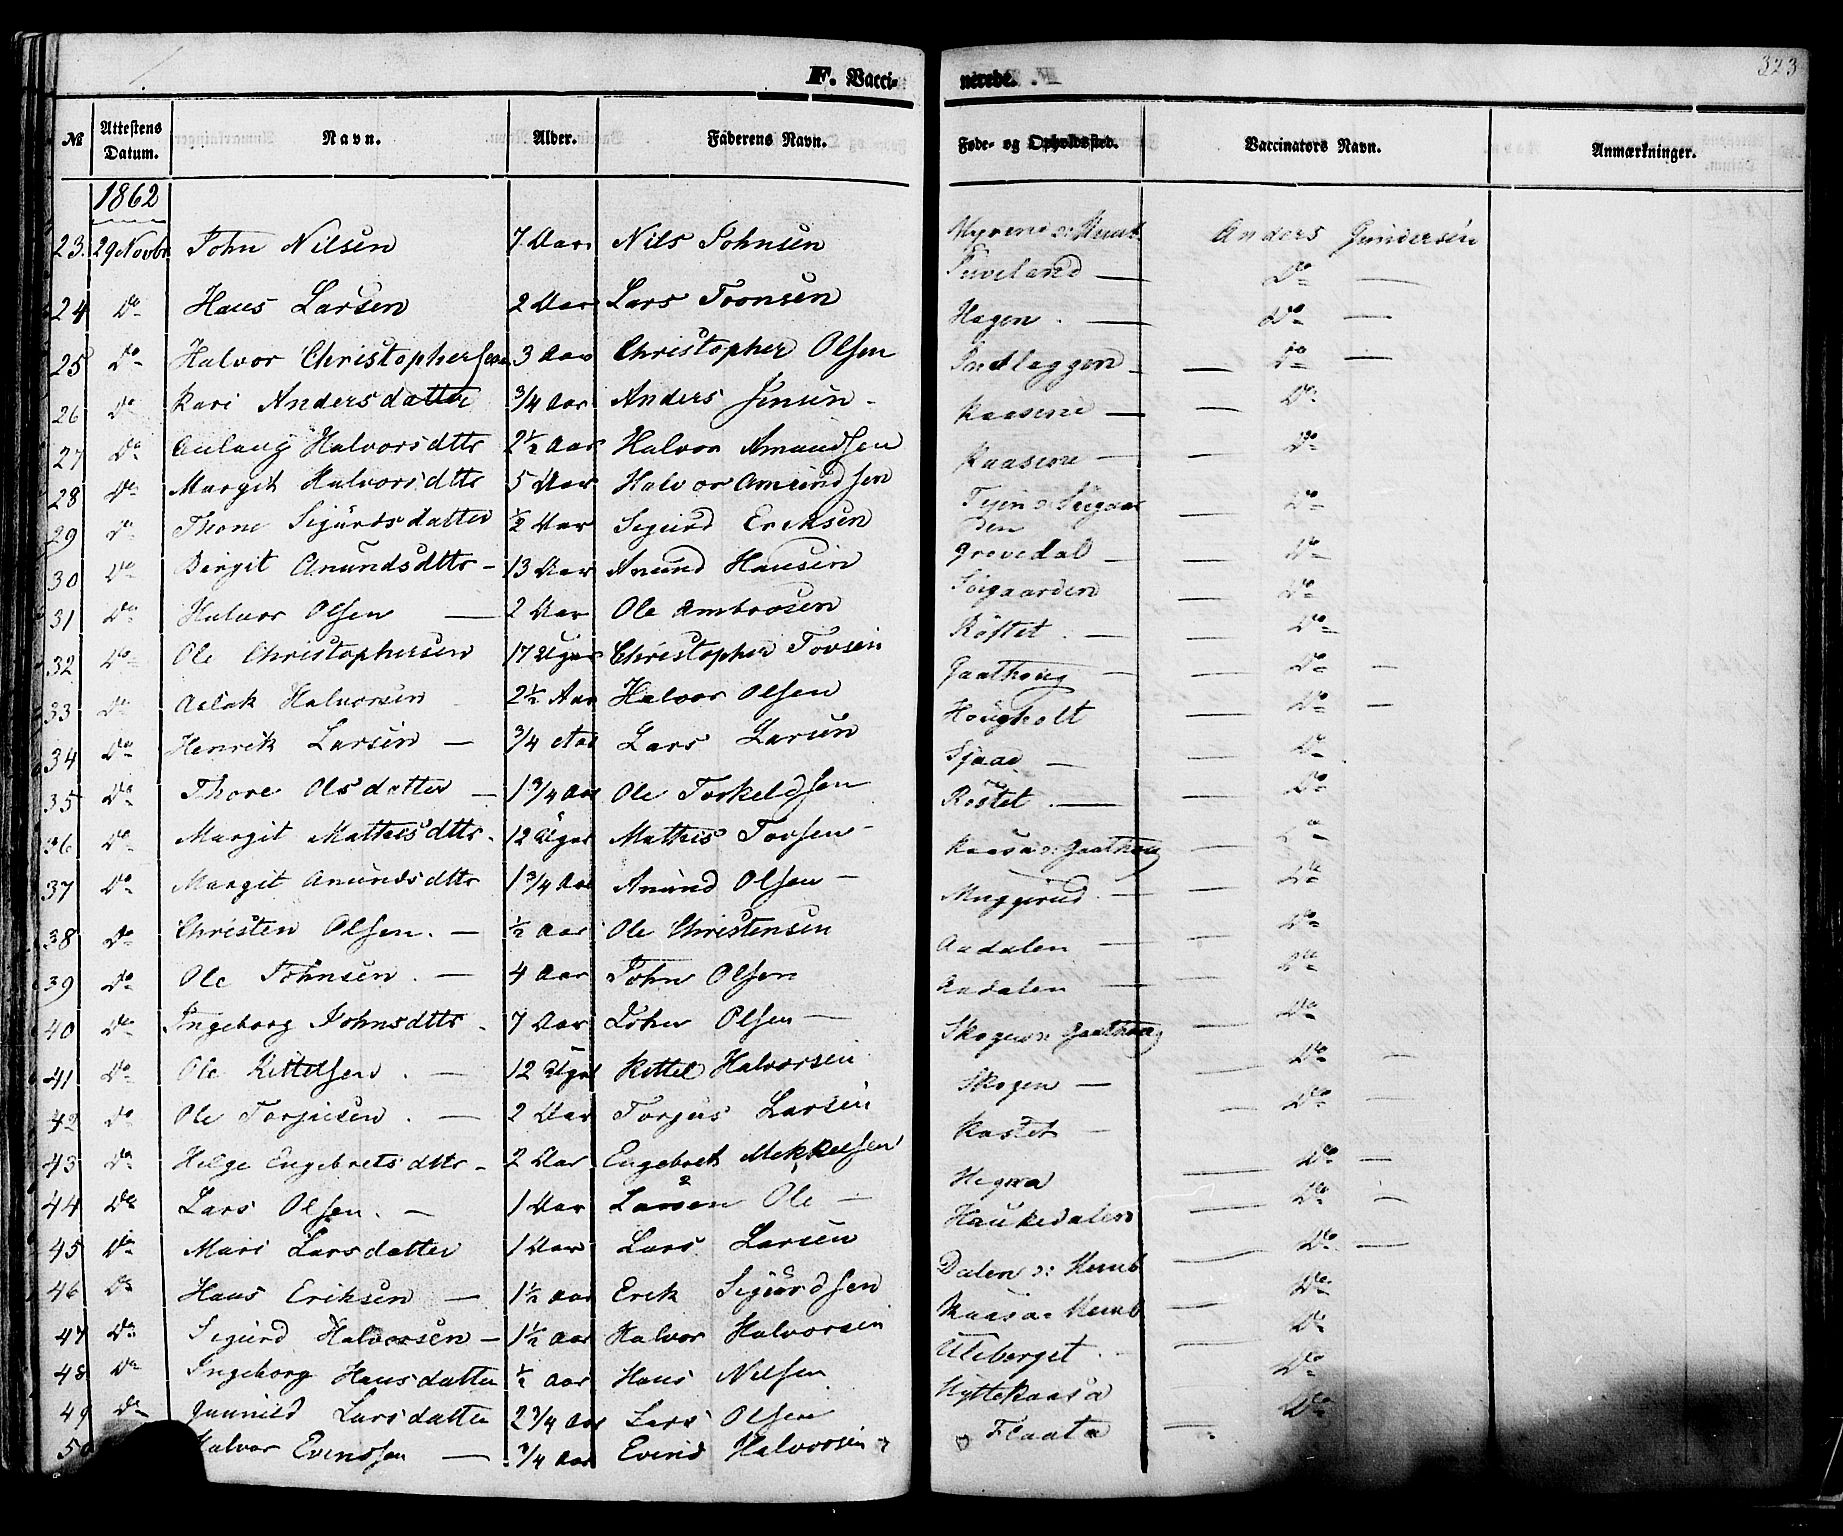 F. Vaccinerede.
323
№ Attestens Datum. Navn. Alder. Faderens Navn. Føde- og Opholdssted. Vaccinators Navn. Anmærkninger.
1862
23. 29 Novbr John Nilsen 7 Aar Nils Johnsen Anders Gundersen
24 Do Hans Larsen 2 Aar Lars Toonsen Tuveland — Do —
25 Do Halvor Christophersen 3 Aar Christopher Olsen Hagen. — Do —
26 Do Kari Andersdatter 3/4 Aar Anders Jensen - Indlaggen — Do —
27 Do Aulaug Halvorsdttr 2 1/2 Aar Halvor Amundsen Kaasene — Do
28 Do Margit Halvorsdttr 5 Aar Halvor Amundsen Kaasene — Do
29 Do Thone Sigurdsdatter 1/2 Aar Sigurd Eriksen — Do
30 Do Birgit Anundsdttr - 13 Aar Anund Hansen Grevedal — Do
31 Do Halvor Olsen — 2 Aar Ole Ambrosen Søigaarden — Do
32 Do Ole Christophersen 17 Uger Christopher Tovsen Røstet. — Do
33 Do Aslak Halvorsen 2 1/2 Aar Halvor Olsen Gaathoug — Do —
34 Do Henrik Larsen — 3/4 Aar Lars Larsen Hougholt — Do —
35 Do Thore Olsdatter — 1 3/4 Aar Ole Torkeldsen Sjaad — Do
36 Do Margit Mathisdttr. 12 Uger Mathis Tovsen - Røstet. — Do
37 Do Margit Anundsdttr 1 3/4 Aar Anund Olsen — Kaasa o: Gaathoug — Do
38 Do Christen Olsen. — 1/2 Aar Ole Christensen Muggerud — Do
39 Do Ole Johnsen. — 4 Aar John Olsen Aadalen — Do
40 Do Ingeborg Johnsdttr. 7 Aar John Olsen — Aadalen — Do
41 Do Ole Kittelsen. — 12 Uger Kittel Halvorsen Skogen o: Gaathoug — Do
42 Do Ole Torjusen. — 2 Aar Torjus Larsen Skogen — Do —
43 Do Helge Engebretsdttr - 2 Aar Engebret Mekkelsen Kastet — Do —
44 Do Lars Olsen. — 1 Aar Larsen Ole — Hegna — Do —
45 Do Mari Larsdatter 1 Aar Lars Larsen Haukedalen — Do —
46 Do Hans Eriksen — 1 1/2 Aar Erik Sigurdsen Dalen o: Humb — Do —
47 Do Sigurd Halvorsen - 1 1/2 Aar Halvor Halvorsen Kaasa o: Humb — Do
48 Do Ingeborg Hansdatter 1/2 Aar Hans Nilsen Uleberget. — Do
49 Do Gunnild Larsdatter 2 3/4 Aar Lars Olsen Hyttekaasa Do
50 Halvor Evendsen — 3/4 Aar Evend Halvorsen Flaata — Do